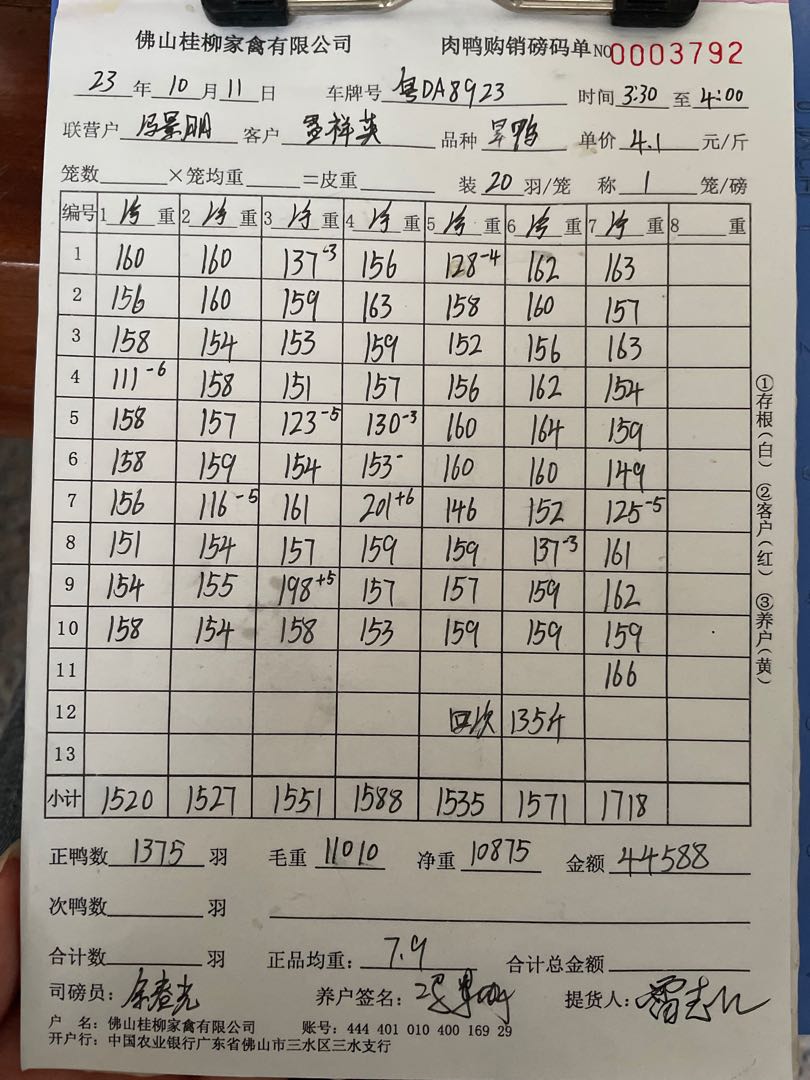 佛山桂柳家禽有限公司 肉鸭购销磅码单 NO 0003792
23 年 10 月 11 日 车牌号 粤DA8923 时间 3:30 至 4:00
联营户 冯景明 客户 孟祥英 品种 旱鸭 单价 4.1 元/斤
笼数 ×笼均重 =皮重 装 20 羽/笼 称 1 笼/磅
编号 1 净 重 2 净 重 3 净 重 4 净 重 5 净 重 6 净 重 7 净 重 8 重
1 160 160 137-3 156 128-4 162 163
2 156 160 159 163 158 160 157
3 158 154 153 159 152 156 163
4 111-6 158 151 157 156 162 154
5 158 157 123-5 130-3 160 164 159
6 158 159 154 153- 160 160 149
7 156 116-5 161 201+6 146 152 125-5
8 151 154 157 159 159 137-3 161
9 154 155 198+5 157 157 159 162
10 158 154 158 153 159 159 159
11 166
12 回次 135斤
13
小计 1520 1527 1551 1588 1535 1571 1718
正鸭数 1375 羽 毛重 11010 净重 10875 金额 44588
次鸭数 羽
合计数 羽 正品均重: 7.9 合计总金额
司磅员: 养户签名: 提货人:
户 名: 佛山桂柳家禽有限公司 账号: 444 401 010 400 169 29
开户行: 中国农业银行广东省佛山市三水区三水支行
①存根(白) ②客户(红) ③养户(黄)